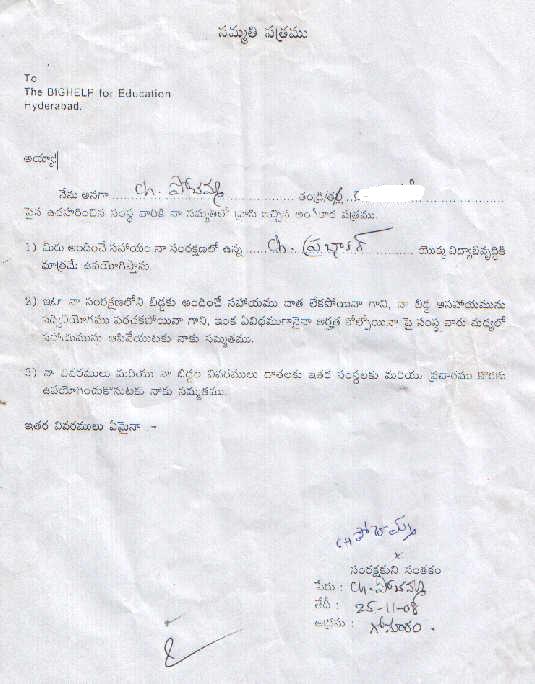 సమ్మతి పత్రము
To
The BIGHELP for Education
Hyderabad.
అయ్యా!
నేను అనగా ... Ch. పోచమ్మ ... తండ్రి/భర్త ..
పైన ఉదహరించిన సంస్థ వారికి నా సమ్మతితో వ్రాసి ఇచ్చిన అంగీకార పత్రము.
1) మీరు అందించే సహాయం నా సంరక్షణలో ఉన్న ..... Ch. ప్రభాకర్ ......... యొక్క విద్యాభివృద్ధికి
మాత్రమే ఉపయోగిస్తాను.
2) ఇకా నా సంరక్షణలోని బిడ్డకు అందించే సహాయము దాత లేకపోయినా గాని, నా బిడ్డ ఆసహాయమును
సద్వినియోగము పరచకపోయినా గాని, ఇంక ఏవిధముగానైనా అర్హత కోల్పోయినా పై సంస్థ వారు మధ్యలో
సహాయమును ఆపివేయుటకు నాకు సమ్మతము.
3) నా వివరములు మరియు నా బిడ్డల వివరములు దాతలకు ఇతర సంస్థలకు మరియు ప్రచారము కొరకు
ఉపయోగించుకొనుటకు నాకు సమ్మతము.
ఇతర వివరములు ఏమైనా :-
CH పోచమ్మ
x
సంరక్షకుని సంతకం
పేరు : Ch. పోచమ్మ
తేదీ : 25-11-08
అడ్రసు : గోమారం.